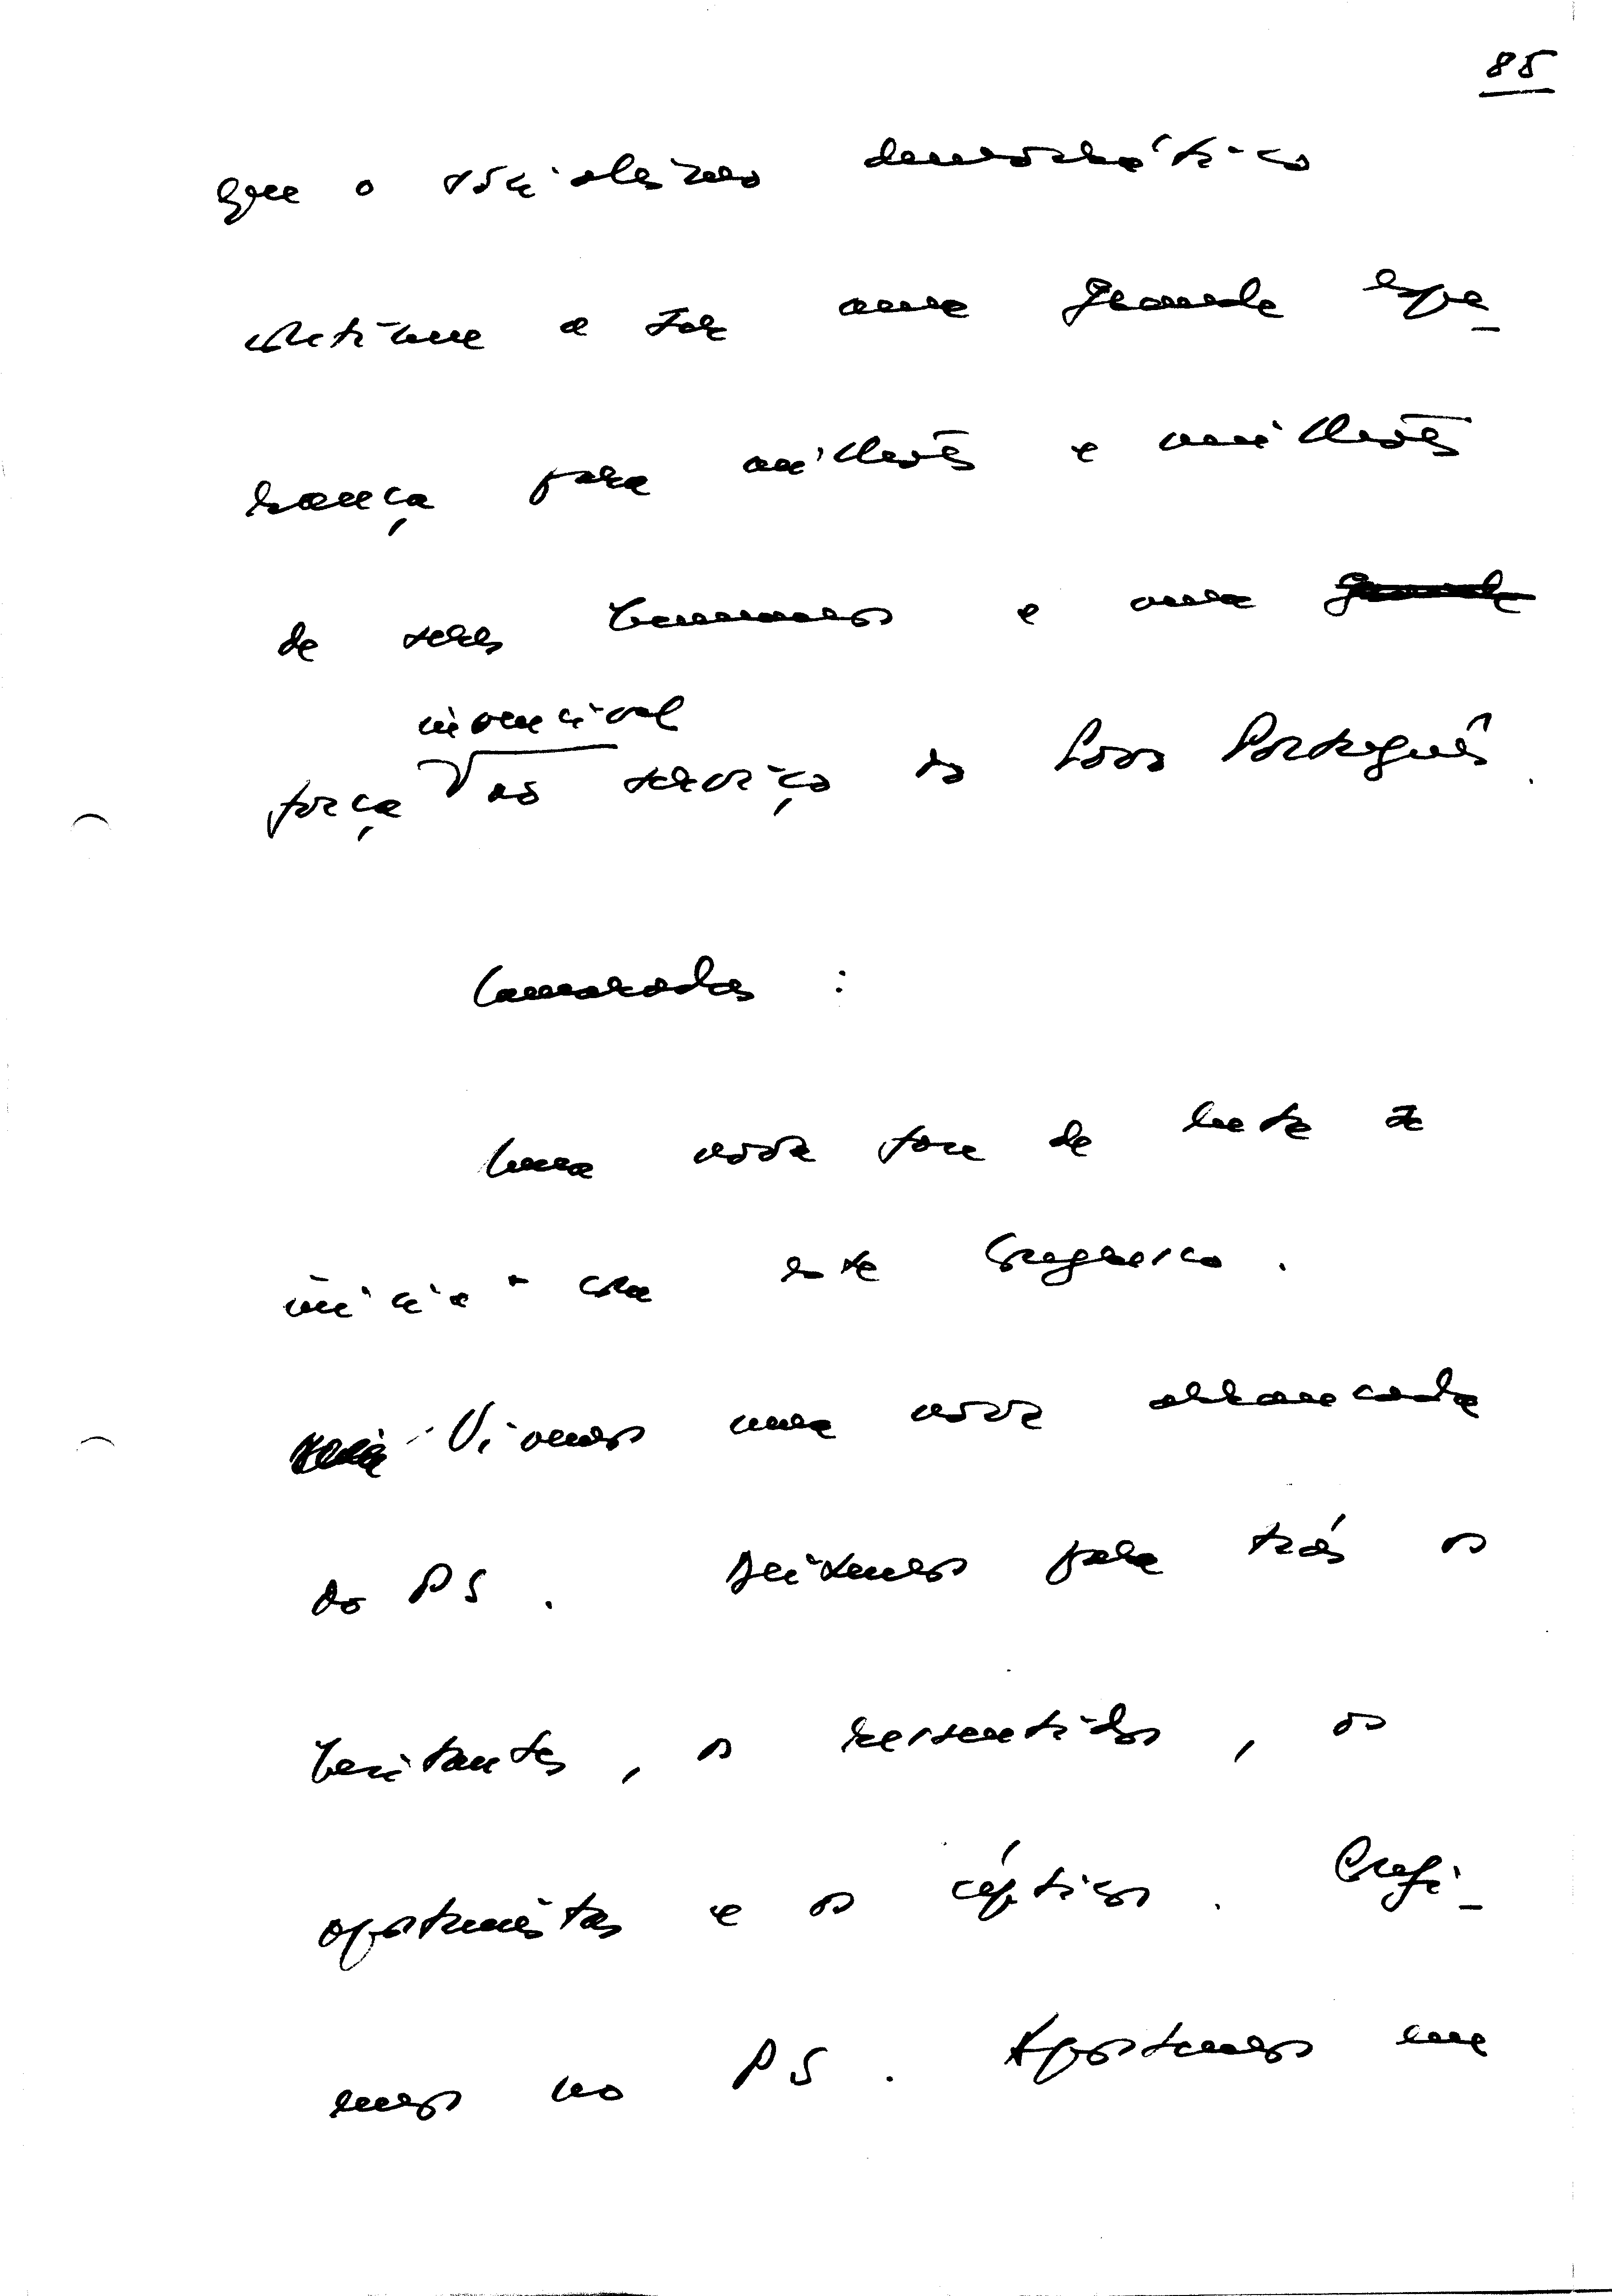 85
que o socialismo democrático
continue a ser uma grande espe-
rança para milhões e milhões
de seres humanos e uma grande
invencível
força ao serviço do Povo Português.
Camaradas:
Uma nova fase de luta se
inicia com este Congresso.
Vivemos uma nova arrancada
do PS. Deixemos para trás os
hesitantes, os ressentidos, os
oportunistas e os cépticos. Confie-
mos no PS. Apostemos em